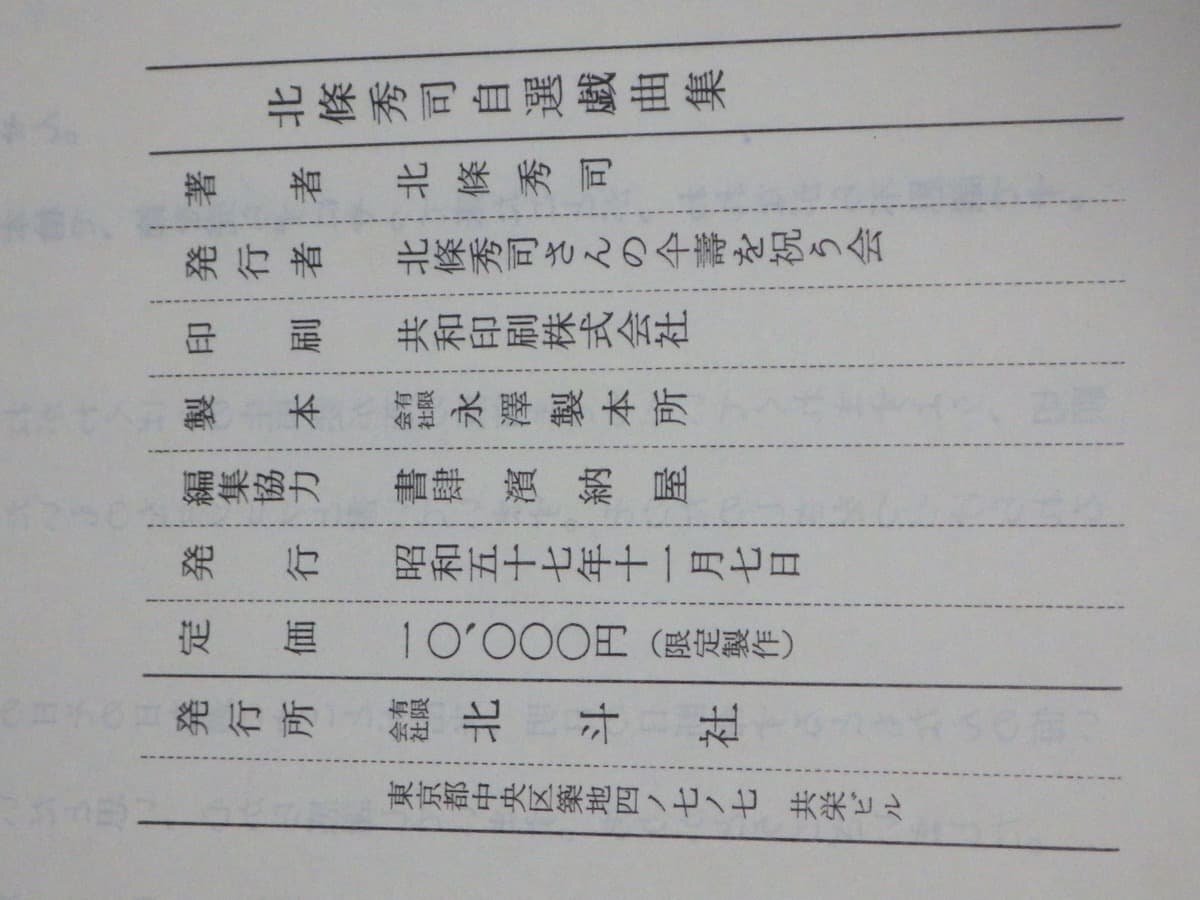 北條秀司自選戯曲集
著者 北條秀司
発行者 北條秀司さんの仐壽を祝う会
印刷 共和印刷株式会社
製本 有限会社 永澤製本所
編集協力 書肆濱納屋
発行 昭和五十七年十一月七日
定価 一〇、〇〇〇円（限定製作）
発行所 有限会社 北斗社
東京都中央区築地四ノ七ノ七 共栄ビル